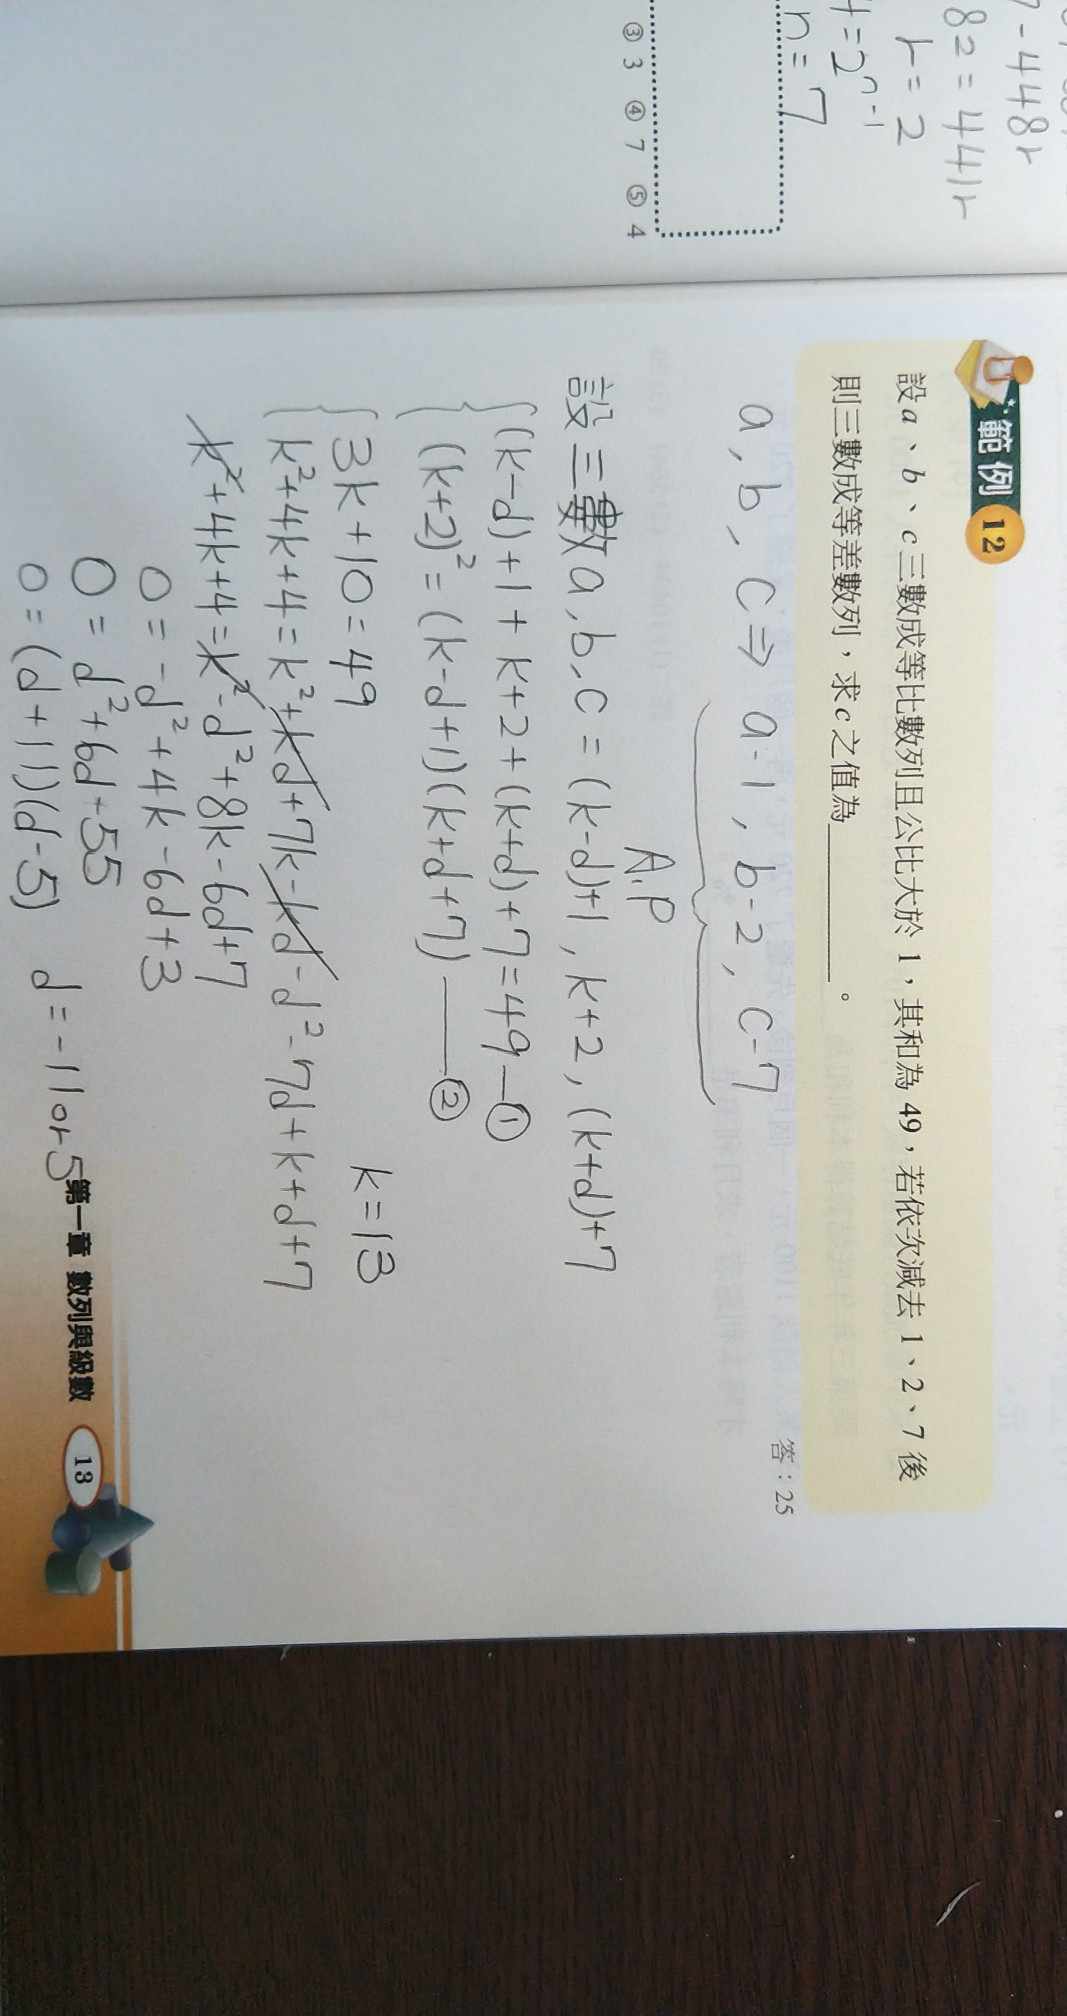 7-448r
82=441r
r=2
4=2^{n-1}
n=7
③ 3 ④ 7 ⑤ 4
範例 12
設 a、b、c 三數成等比數列且公比大於 1，其和為 49，若依次減去 1、2、7 後
則三數成等差數列，求 c 之值為________。
答：25
a, b, c ⇒ a-1, b-2, c-7
A.P
設三數a,b,c=(k-d)+1, k+2, (k+d)+7
(k-d)+1+k+2+(k+d)+7=49—①
(k+2)²=(k-d+1)(k+d+7)——②
3k+10=49 k=13
k²+4k+4=k²+kd+7k-kd-d²-7d+k+d+7
k²+4k+4=k²-d²+8k-6d+7
0=-d²+4k-6d+3
0=d²+6d-55
0=(d+11)(d-5) d=-11or5
第一章 數列與級數 13